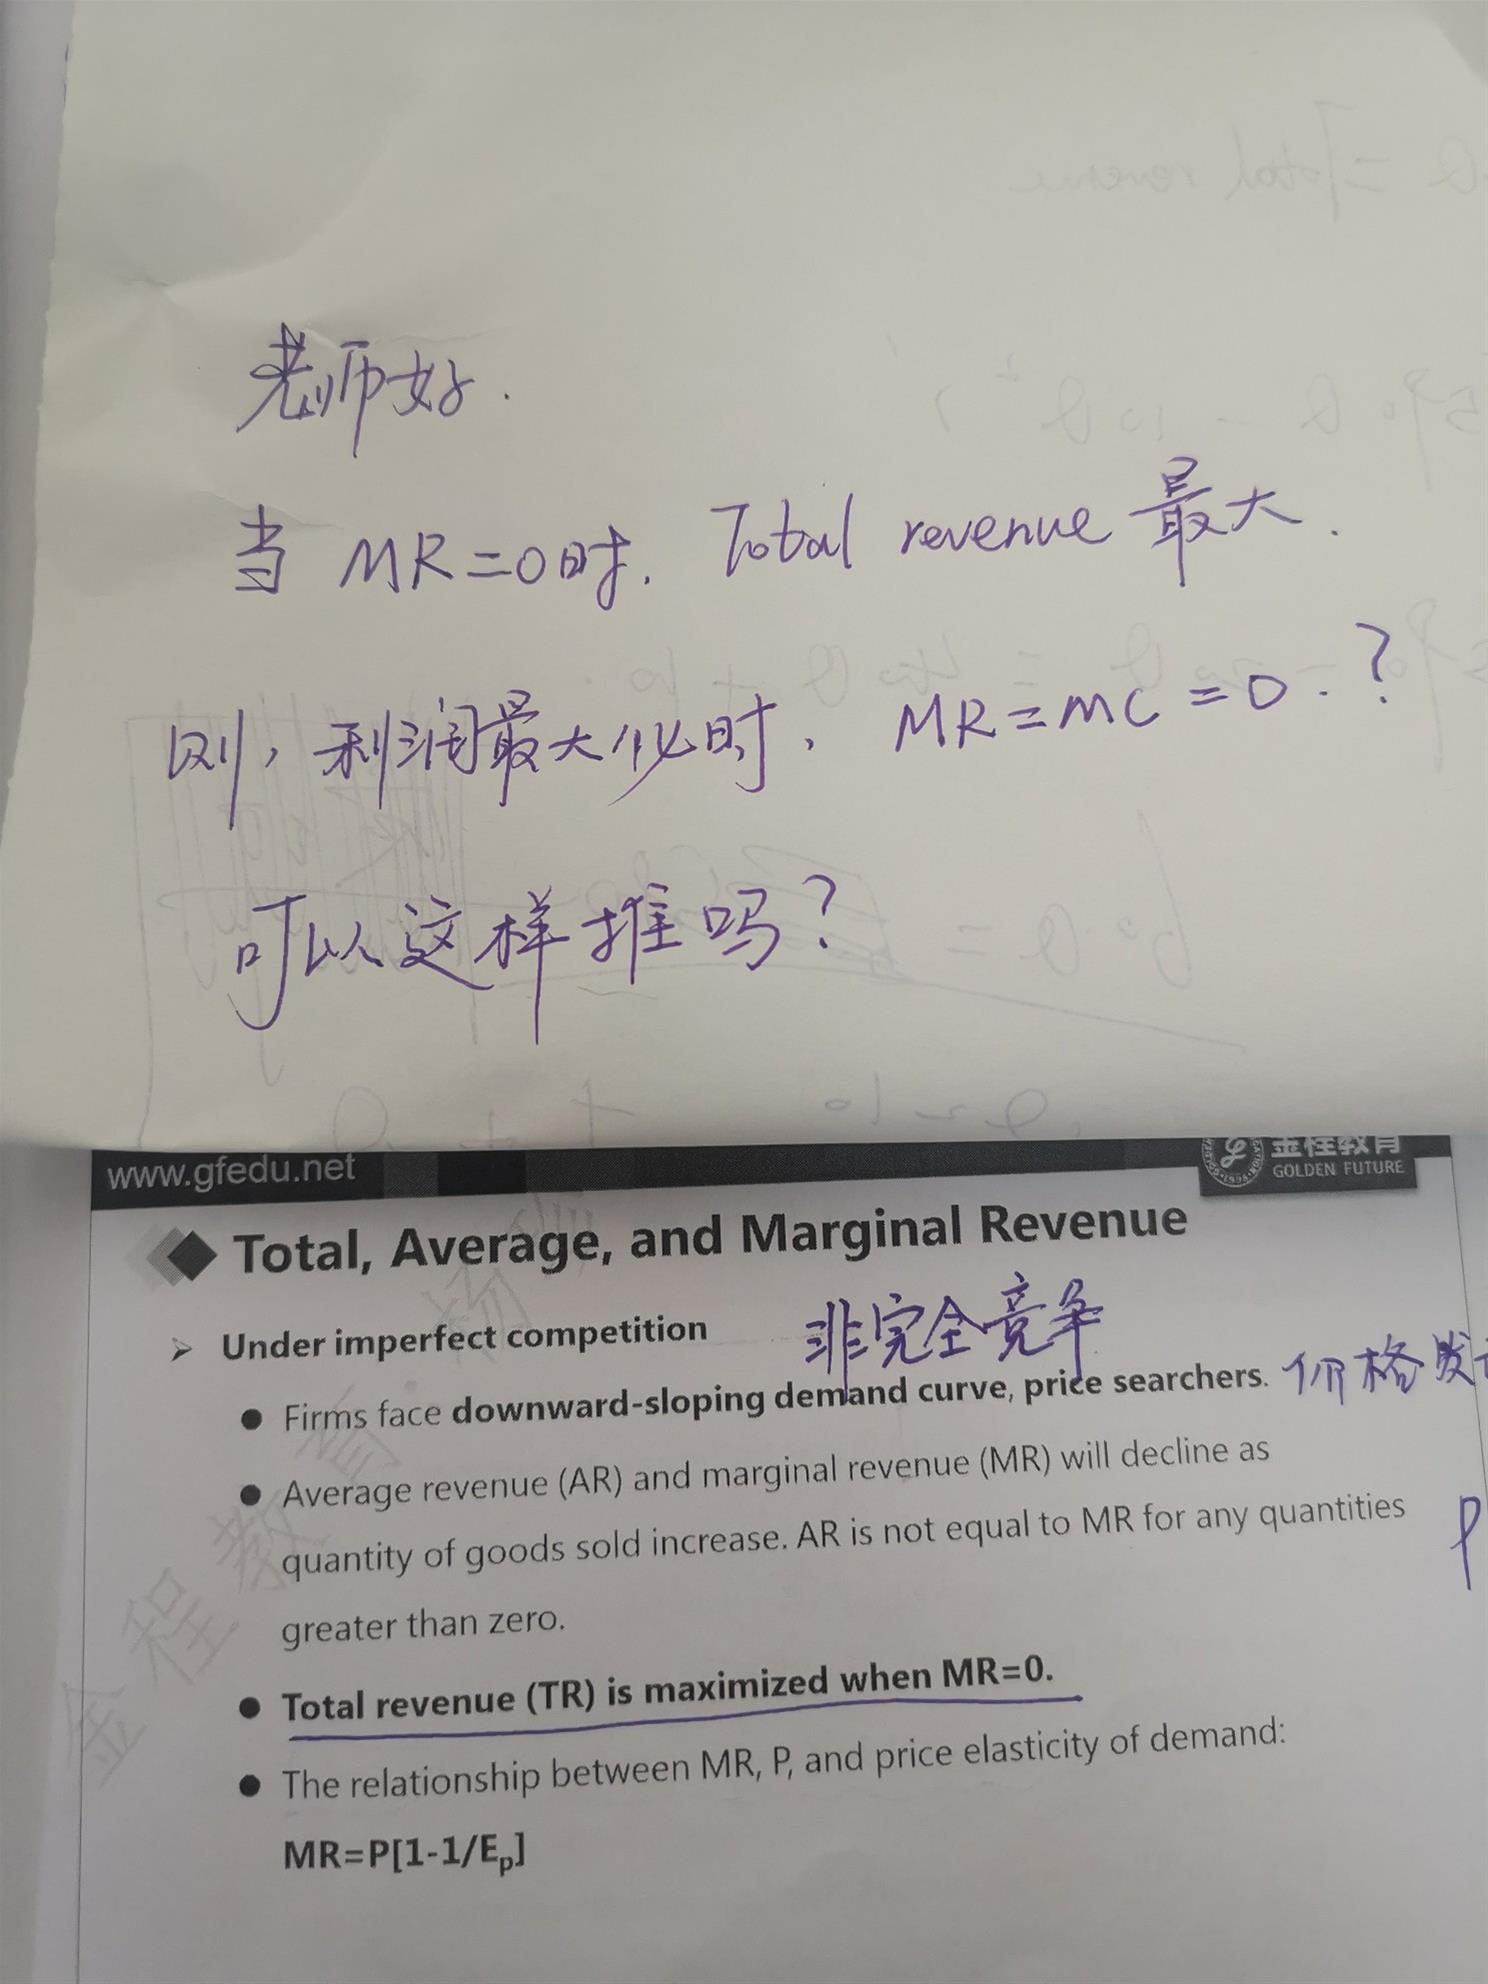 老师好.
当 MR=0时. Total revenue 最大.
则, 利润最大化时, MR=MC=0.?
可以这样推吗?
www.gfedu.net
金程教育
GOLDEN FUTURE
Total, Average, and Marginal Revenue
Under imperfect competition 非完全竞争
Firms face downward-sloping demand curve, price searchers. 价格发
Average revenue (AR) and marginal revenue (MR) will decline as
quantity of goods sold increase. AR is not equal to MR for any quantities
greater than zero.
P
Total revenue (TR) is maximized when MR=0.
The relationship between MR, P, and price elasticity of demand:
MR=P[1-1/Ep]